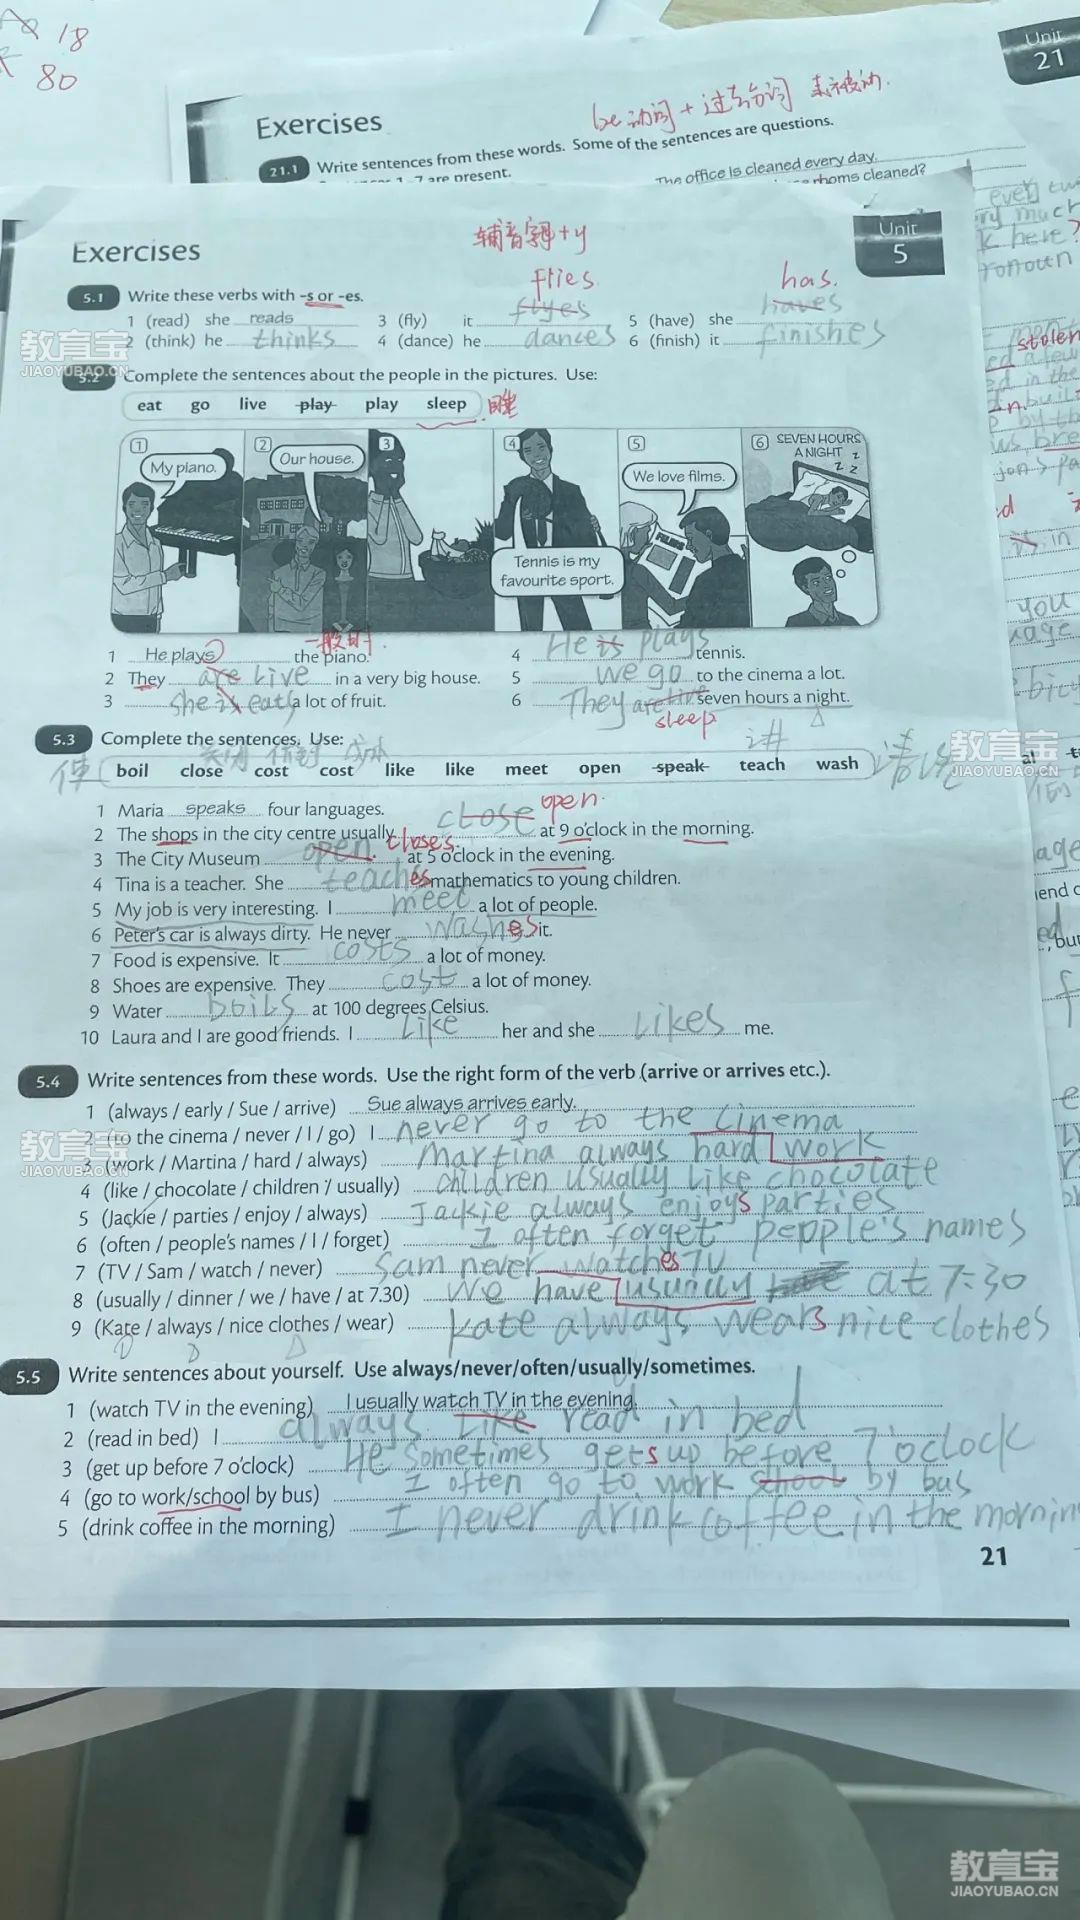 18
80
Unit
21
be动词+过去分词 表被动.
Exercises
21.1 Write sentences from these words. Some of the sentences are questions.
are present.
The office is cleaned every day.
cleaned?
Exercises
辅音字母+y
Unit
5
5.1 Write these verbs with -s or -es.
flies
has.
1 (read) she reads 3 (fly) it flyes 5 (have) she haves
2 (think) he thinks 4 (dance) he dances 6 (finish) it finishes
5.2 Complete the sentences about the people in the pictures. Use:
eat go live play play sleep 睡
1 My piano.
2 Our house.
3
4 Tennis is my favourite sport.
5 We love films.
FILMS
6 SEVEN HOURS A NIGHT z z z
一般时.
1 He plays the piano. 4 He is plays tennis.
2 They are live in a very big house. 5 we go to the cinema a lot.
3 she is eats a lot of fruit. 6 They are live seven hours a night.
sleep
5.3 Complete the sentences. Use:
boil close cost cost like like meet open speak teach wash
1 Maria speaks four languages.
open.
2 The shops in the city centre usually close at 9 o'clock in the morning.
closes
3 The City Museum open. at 5 o'clock in the evening.
4 Tina is a teacher. She teaches mathematics to young children.
5 My job is very interesting. I meet a lot of people.
6 Peter's car is always dirty. He never washes it.
7 Food is expensive. It costs a lot of money.
8 Shoes are expensive. They cost a lot of money.
9 Water boils at 100 degrees Celsius.
10 Laura and I are good friends. I like her and she likes me.
5.4 Write sentences from these words. Use the right form of the verb (arrive or arrives etc.).
1 (always / early / Sue / arrive) Sue always arrives early.
2 (to the cinema / never / I / go) I never go to the cinema
3 (work / Martina / hard / always) Martina always hard work
4 (like / chocolate / children / usually) children usually like chocolate
5 (Jackie / parties / enjoy / always) Jackie always enjoys parties
6 (often / people's names / I / forget) I often forget pepple's names
7 (TV / Sam / watch / never) Sam never watches TV
8 (usually / dinner / we / have / at 7.30) We have usunlly at 7:30
9 (Kate / always / nice clothes / wear) Kate always wears nice clothes
5.5 Write sentences about yourself. Use always/never/often/usually/sometimes.
1 (watch TV in the evening) I usually watch TV in the evening.
2 (read in bed) I always like read in bed
3 (get up before 7 o'clock) He sometimes gets up before 7 o'clock
4 (go to work/school by bus) I often go to work school by bus
5 (drink coffee in the morning) I never drink coffee in the mornin
21
教育宝
JIAOYUBAO.CN
教育宝
JIAOYUBAO.CN
教育宝
JIAOYUBAO.CN
教育宝
JIAOYUBAO.CN